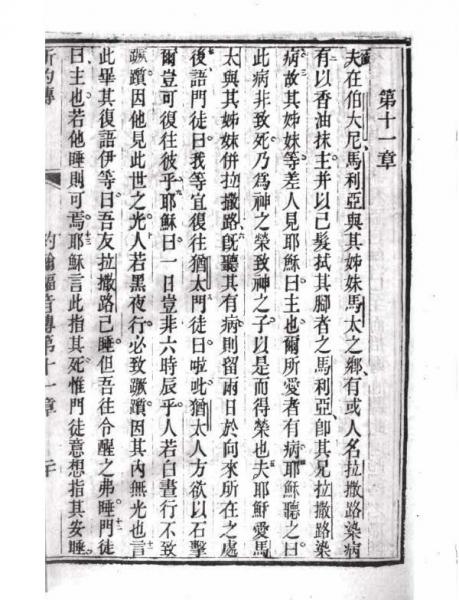 第十一章
夫在伯大尼馬利亞與其姊妹馬太之鄉有或人名拉撒路染病
有以香油抹主并以己髮拭其腳者之馬利亞卽其兄拉撒路染
病故其姊妹等差人見耶穌曰主也爾所愛者有病耶穌聽之曰
此病非致死乃爲神之榮致神之子以是而得榮也夫耶穌愛馬
太與其姊妹併拉撒路旣聽其有病則留兩日於向來所在之處
後語門徒曰我等宜復往猶太門徒曰啦吡猶太人方欲以石擊
爾豈可復往彼乎耶穌曰一日豈非六時辰乎人若白晝行不致
蹶躓因他見此世之光人若黑夜行必致蹶躓因其內無光也言
此畢其復語伊等曰吾友拉撒路已睡但吾往令醒之弗睡門徒
曰主也若他睡則可焉耶穌言此指其死惟門徒意想指其安睡
約翰福音傳第十一章